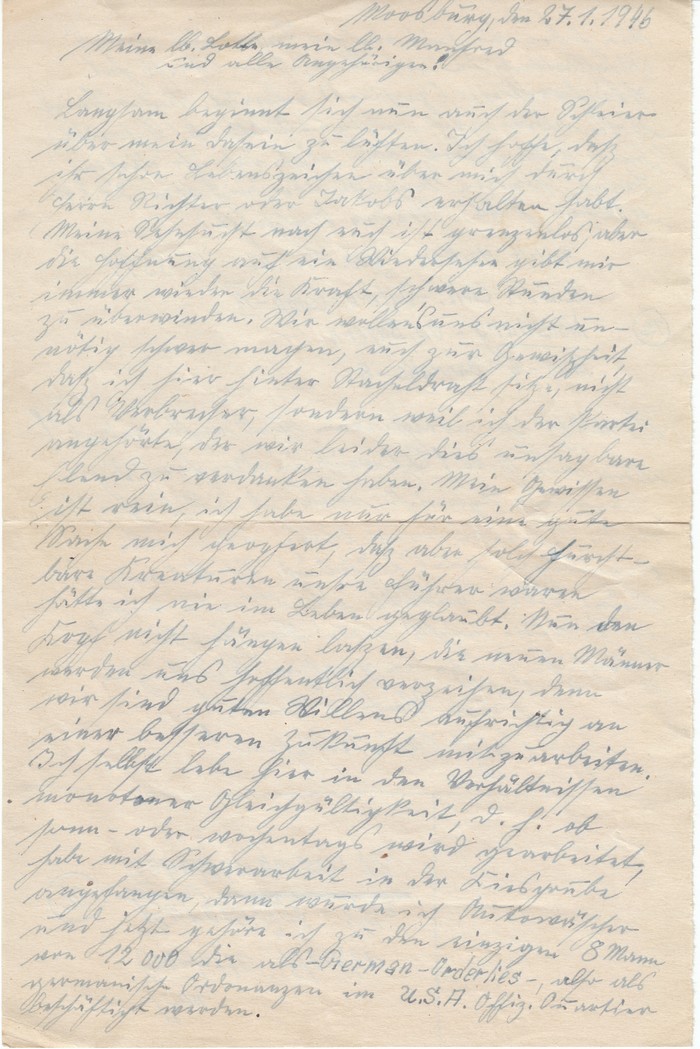 Moosburg, den 27.1.1946
Meine lb. Lotte, mein lb. Manfred
und alle Angehörigen!
Langsam beginnt sich nun auch der Schleier
über mein Dasein zu lüften. Ich hoffe, daß
ihr schon Lebenszeichen über mich durch
Herrn Richter oder Jakobs erhalten habt.
Meine Sehnsucht nach euch ist grenzenlos, aber
die Hoffnung auf ein Wiedersehen gibt mir
immer wieder die Kraft, schwere Stunden
zu überwinden. Wir wollen's uns nicht un-
nötig schwer machen, euch zur Gewißheit,
daß ich hier hinter Stacheldraht sitze, nicht
als Verbrecher, sondern weil ich der Partei
angehörte, der wir leider dies unsagbare
Elend zu verdanken haben. Mein Gewissen
ist rein, ich habe nur für eine gute
Sache mich geopfert, daß aber solch furcht-
bare Kreaturen unsre Führer waren
hätte ich nie im Leben geglaubt. Nun den
Kopf nicht hängen laßen, die neuen Männer
werden uns hoffentlich verzeihen, denn
wir sind guten Willens aufrichtig an
einer besseren Zukunft mitzuarbeiten.
Ich selbst lebe hier in den Verhältnissen
monotoner Gleichgültigkeit, d. h. ob
sonn- oder wochentags wird gearbeitet,
habe mit Schwerarbeit in der Kiesgrube
angefangen, dann wurde ich Autowäscher
und jetzt gehöre ich zu den einzigen 8 Mann
von 12000 die als -German-Orderlies-, also als
germanische Ordonanzen im U.S.A. Offiz. Quartier
beschäftigt werden.